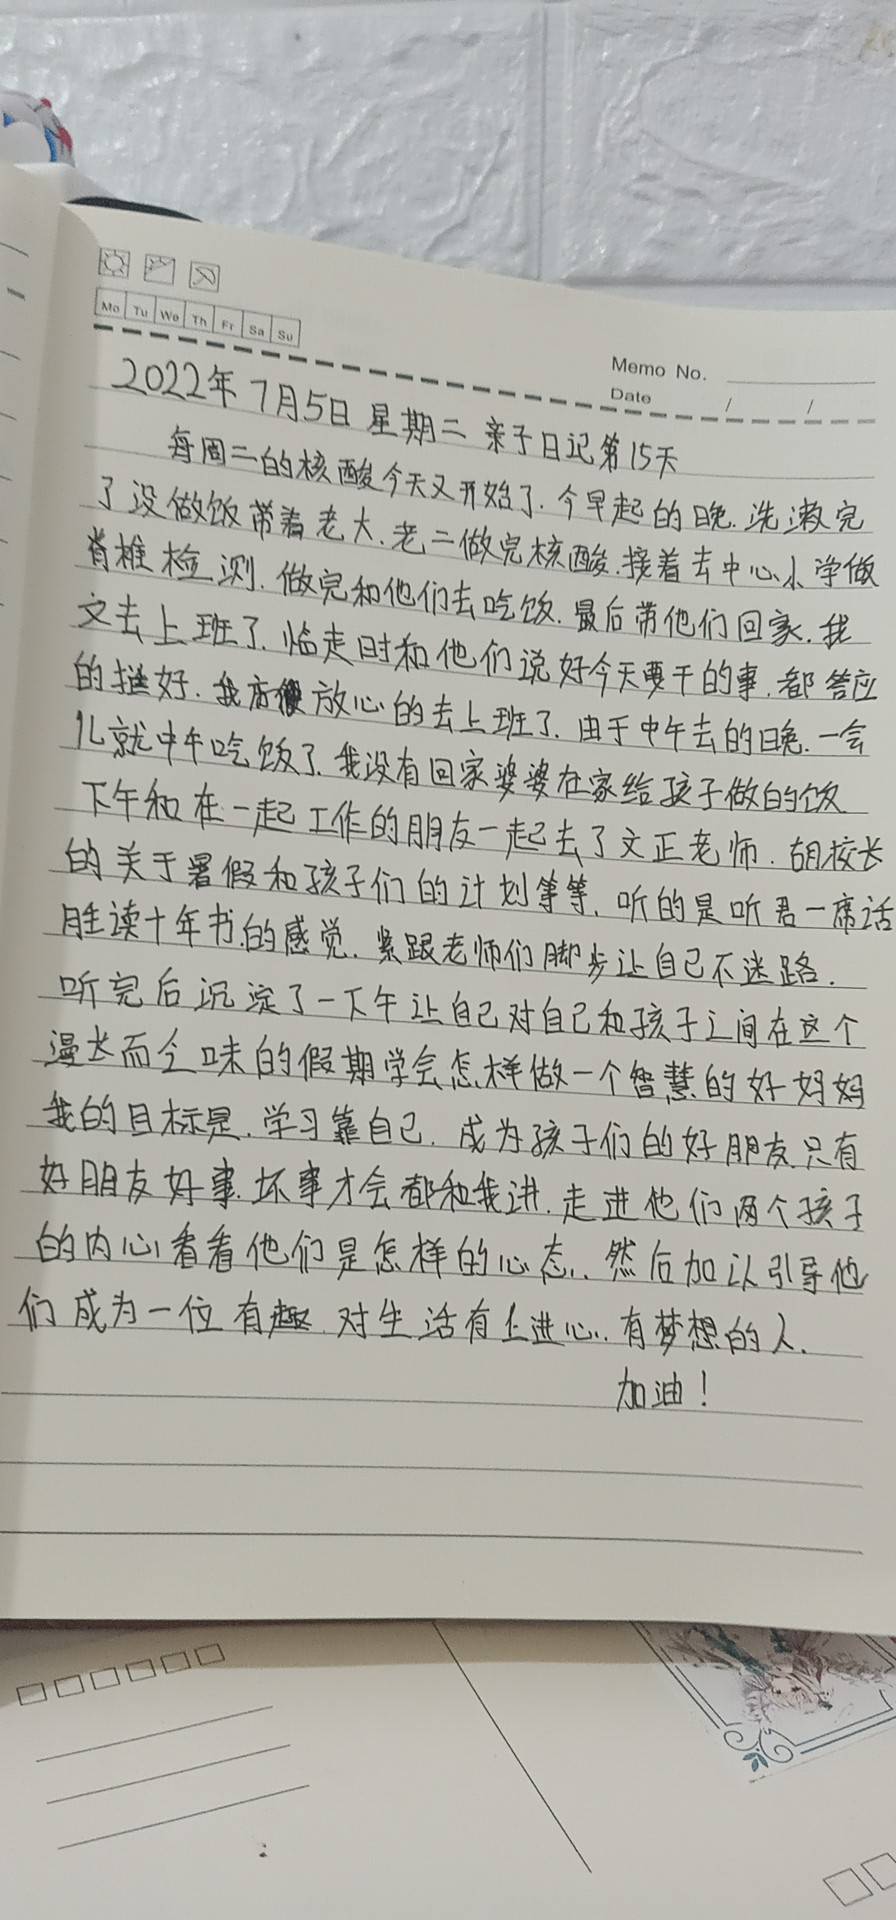 Mo Tu We Th Fr Sa Su
Memo No.
Date / /
2022年7月5日 星期二 亲子日记第15天
每周二的核酸今天又开始了.今早起的晚.洗漱完
了没做饭带着老大.老二做完核酸.接着去中心小学做
脊椎检测.做完和他们去吃饭.最后带他们回家.我
又去上班了.临走时和他们说好今天要干的事.都答应
的挺好.我方便放心的去上班了.由于中午去的晚.一会
儿就中午吃饭了.我没有回家婆婆在家给孩子做的饭
下午和在一起工作的朋友一起去了文正老师.胡校长
的关于暑假和孩子们的计划等等.听的是听君一席话
胜读十年书.的感觉.紧跟老师们脚步让自己不迷路.
听完后沉淀了一下午让自己对自己和孩子之间在这个
漫长而乏味的假期学会怎样做一个智慧的好妈妈
我的目标是.学习靠自己.成为孩子们的好朋友.只有
好朋友好事.坏事才会都和我讲.走进他们两个孩子
的内心看看他们是怎样的心态..然后加以引导他
们成为一位有趣.对生活有上进心..有梦想的人.
加油！